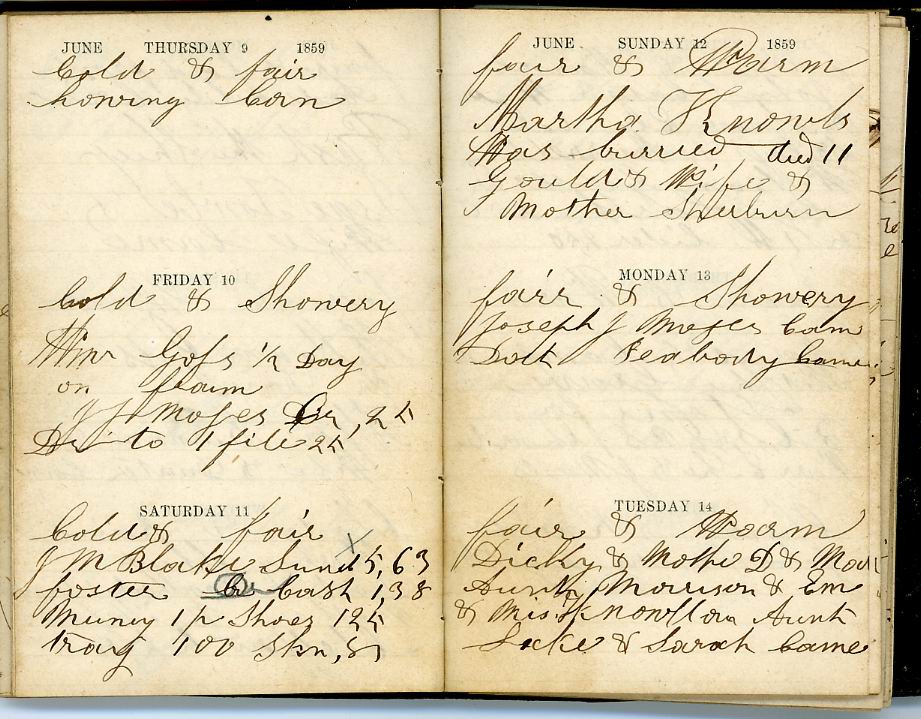 JUNE THURSDAY 9 1859
Cold & fair
howing Corn
FRIDAY 10
Cold & Showery
Gofs 1/2 Day
on
J J Mofes Dr, 25
Ditto 1 file 25
SATURDAY 11
Cold & fair
J M Blake Sund 5,63
foster Cr Cash 1,38
1 pr Shoes 125
100
JUNE SUNDAY 12 1859
fair & Warm
Martha Knowls
Was burried died 11
Gould & Wife &
Mother Sherburn
MONDAY 13
fair & Showery
Joseph J Mofes Cam
Peabody Came
TUESDAY 14
fair & Warm
Dicky & Mothe D &
Aunty Morrison & Em
& Miss Aunt
& Sarah Came